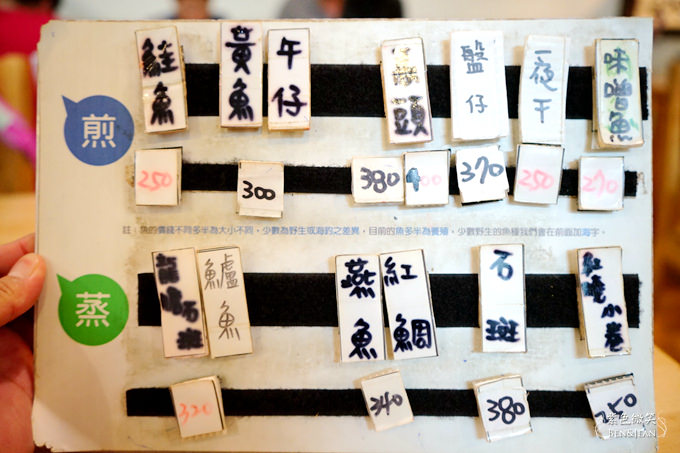 煎
鮭魚 黃魚 午仔 頭 盤仔 一夜干 味噌魚
250 300 380 400 370 250 270
註：魚的價錢不同多半為大小不同，少數為野生或海釣之差異，目前的魚多半為養殖，少數野生的魚種我們會在前面加海字。
蒸
龍膽石斑 鱸魚 燕魚 紅鯛 石斑 紅燒小卷
320 340 380 250
紫色微笑
BEN&JEAN